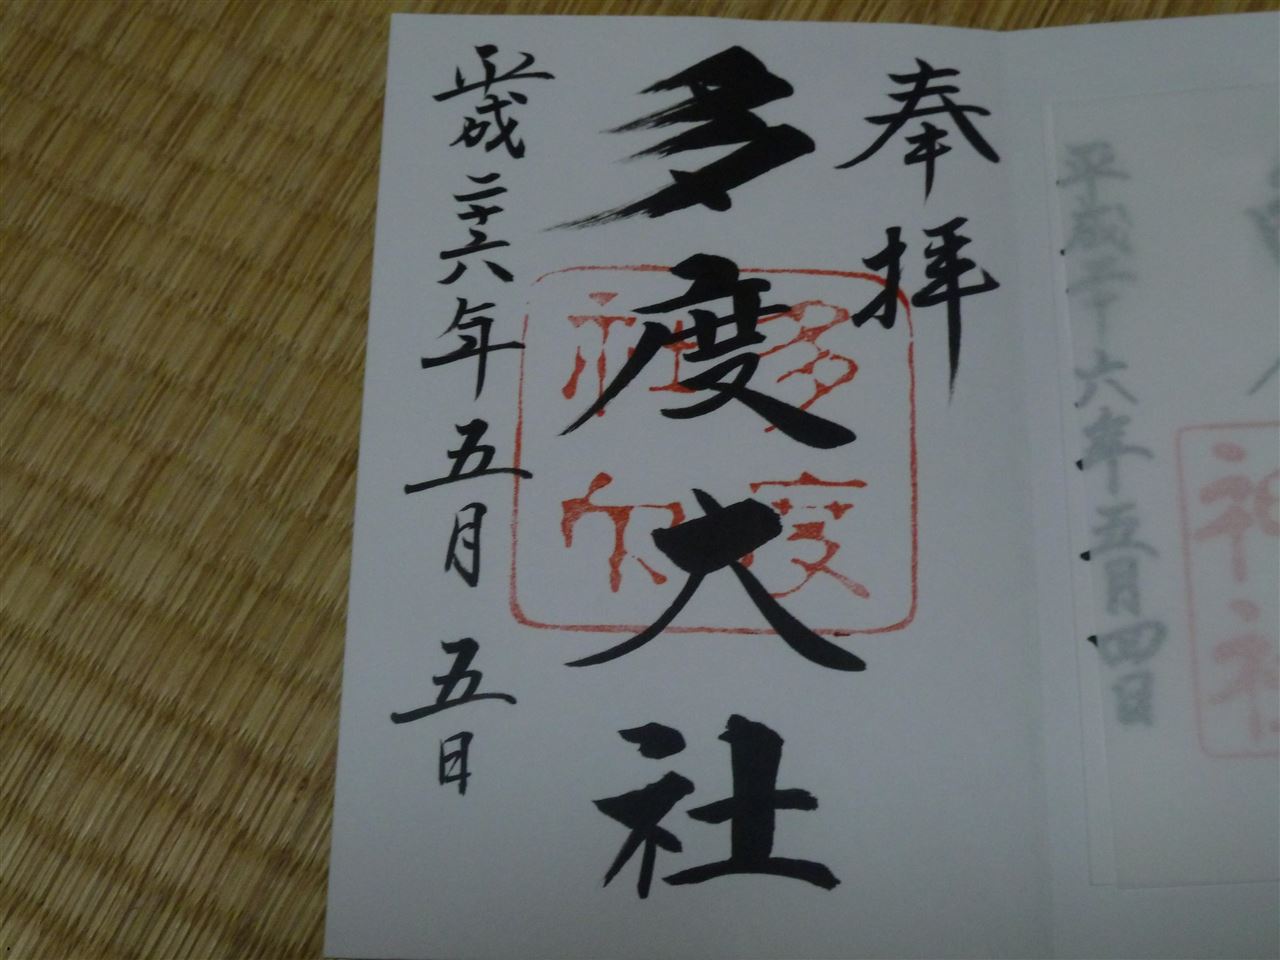 平成二十六年五月四日
奉拝
多度大社
平成二十六年五月五日
多度
社印